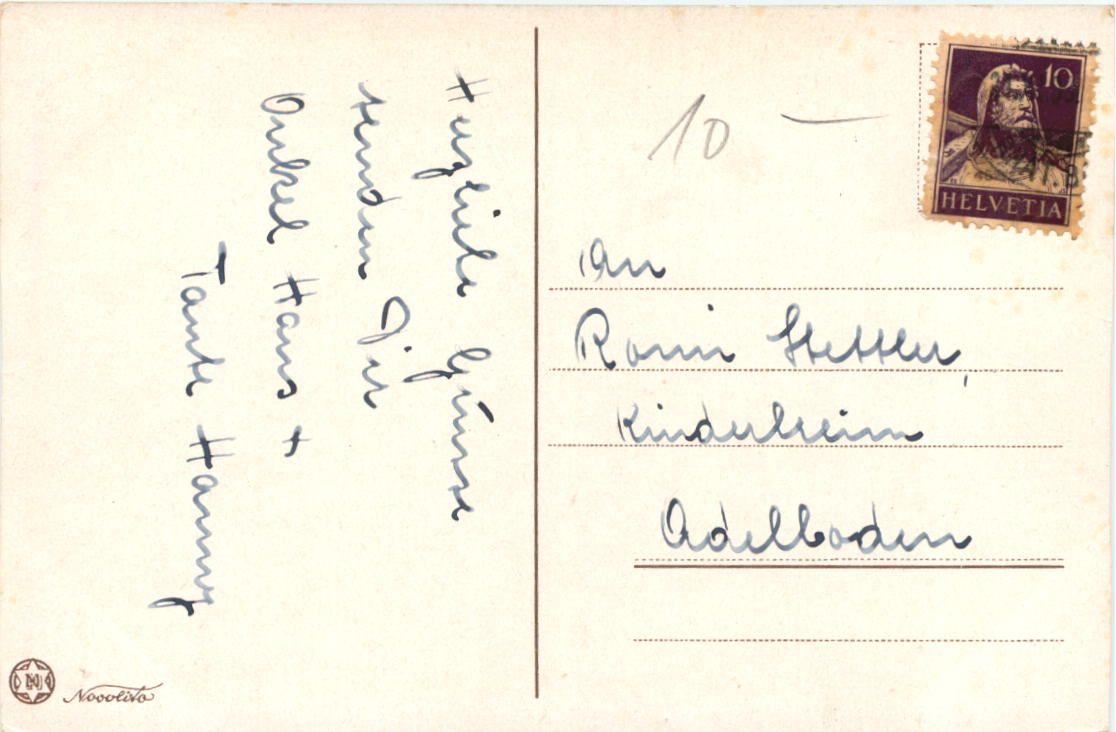 Herzliche Grüsse
senden Dir
Onkel Hans +
Tante Hanny
10 —
10
HELVETIA
An
Romi Stettler,
Kinderheim
Adelboden
Novolito